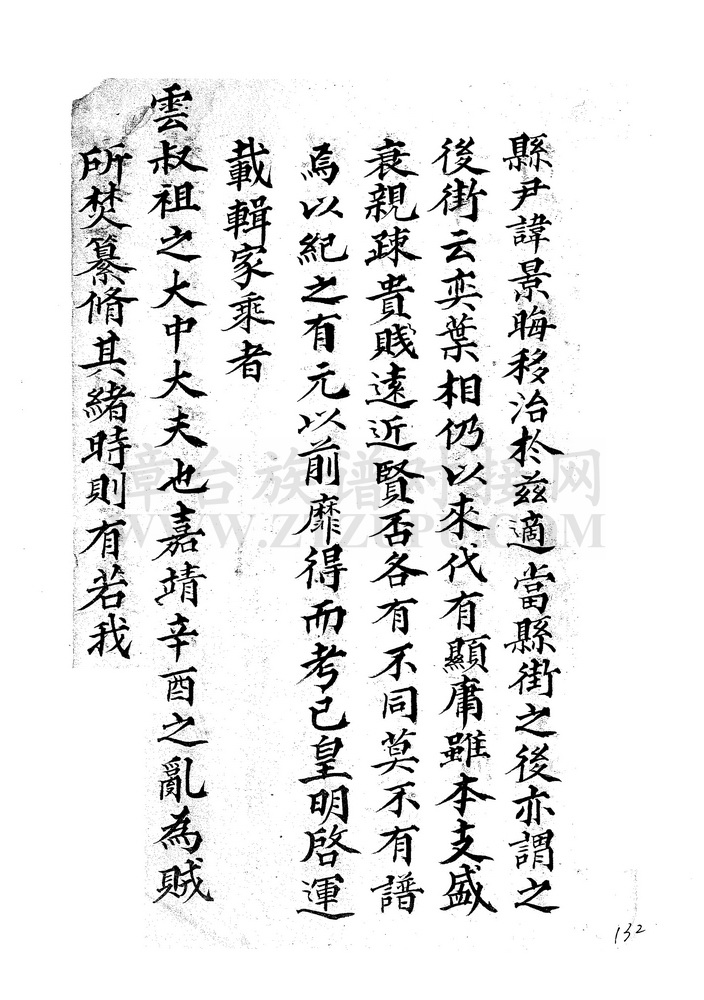 縣尹諱景晦移治於茲適當縣街之後亦謂之
後街云奕葉相仍以來代有顯庸雖本支盛
衰親疎貴賤遠近賢否各有不同莫不有譜
焉以紀之有元以前靡得而考已皇明啓運
載輯家乘者
雲叔祖之大中大夫也嘉靖辛酉之亂為賊
所焚纂脩其緒時則有若我
章台族谱对接网
WWW.ZTZUPU.COM
132